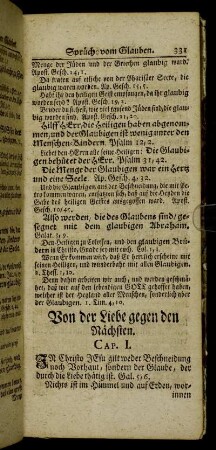 Sprüch vom Glauben. 331
Menge der Jüden und der Griechen glaubig ward/
Apost. Gesch. 14, 1.
Da traten auf etliche von der Pharisäer Secte, die
glaubig waren worden. Ap. Gesch. 15, 5.
Habt ihr den heiligen Geist empfangen, da ihr glaubig
worden seyd? Apost. Gesch. 19, 2.
Bruder du siehest, wie viel tausend Jüden sind, die glaubig
worden sind. Apost. Gesch. 21, 20.
Hilff HErr, die Heiligen haben abgenom-
men, und der Glaubigen ist wenig unter den
Menschen-Kindern. Psalm 12, 2.
Liebet den HErrn alle seine Heiligen: Die Glaubi-
gen behütet der HErr. Psalm 31, 42.
Die Menge der Glaubigen war ein Hertz
und eine Seele. Ap. Gesch. 4, 32.
Und die Glaubigen aus der Beschneidung, die mit Pe-
tro kommen waren, entsatzten sich, daß auch auf die Heyden
die Gabe des heiligen Geistes ausgegossen ward. Apost.
Gesch. 10, 45.
Also werden, die des Glaubens sind/ ge-
segnet mit dem glaubigen Abraham.
Galat. 3, 9.
Den Heiligen zu Colossen, und den glaubigen Brü-
dern in Christo, Gnade sey mit euch. Col. 1, 2.
Wenn Er kommen wird, daß Er herrlich erscheine mit
seinen Heiligen, und wunderbar mit allen Glaubigen.
2. Thess. 1, 10.
Denn dahin arbeiten wir auch, und werden geschmä-
het, daß wir auf den lebendigen GOtt gehoffet haben,
welcher ist der Heyland aller Menschen, sonderlich aber
der Glaubigen. 1. Tim. 4, 10.
Von der Liebe gegen den
Nächsten.
CAP. I.
IN Christo JEsu gilt weder Beschneidung
noch Vorhaut, sondern der Glaube, der
durch die Liebe thätig ist. Gal. 5, 6.
Nichts ist im Himmel und auf Erden, wor-
innen